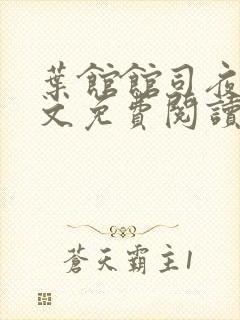 葉館館司夜
文免費閱讀
蒼天霸主1